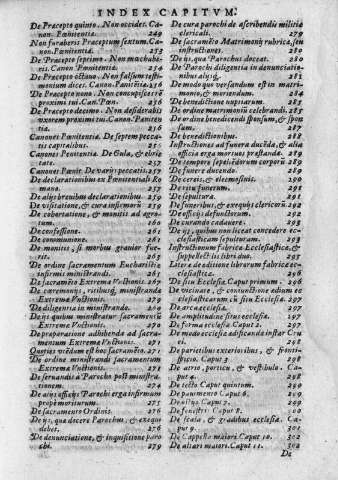 INDEX CAPITVM.
De Præcepto quinto. Non occides. Canon. Pœnitentia. 249
Non furaberis Præceptum sextum. Canon. Pœnitentia. 253
De Præcepto septimo. Non machaberis. Canon. Pœnitentia.
De Præcepto octauo. Non falsum testimonium dices. Canon. Pœnitentia. 256
De Præcepto nono. Non concupisces rē proximi tui. Can. Pœn.
De Præcepto decimo. Non desiderabis vxorem proximi tui. Canon. Pœnitentia. 256
Canones Pœnitentia. De septem peccatis capitalibus. 255
Canones Pœnitent. De Gula, & ebrietate.
Canones Pœnit. De varijs peccatis.
De declarationibus ex Pœnitentiali Romano. 257
De alijs breuibus declarationibus. 259
De visitatione, & cura infirmorū 259
De cohortatione, & monitis ad agrotum. 260
De confessione. 261
De communione. 261
De monitis, si morbus grauior fuerit. 263
De ordine sacramentum Eucharistiæ infirmis ministrandi.
De sacramēto Extremæ Vnctionis. 267
De cæremonijs, ritibusq. ministrandi Extremæ Vnctionis.
De diligentia in ministrando.
De ijs quibus ministratur sacramentū Extremæ Vnctionis.
De præparatione adhibenda ad sacramentum Extremæ Vnctionis. 271
Quoties vtendum est hoc sacramēto. 271
De ordine ministrandi sacramentum Extremæ Vnctionis. 271
De seruandis à Parocho post ministrationem. 274
De alijs officijs Parochi erga infirmum propè moriturum. 275
De sacramento Ordinis. 276
De ijs, qua docere Parochus, & exequi debet. 276
De denunciatione, & inquisitione parochi 279
De cura parochi de ascribendis militiæ clericali. 279
De sacramēto Matrimonij rubrica, seu instructiones. 280
De ijs, qua Parochus doceat. 280
De Parochi diligentia in denunciationibus alijsq. 281
De modo quo versandum est in matrimonio, & monendum. 284
De benedictione nuptiarum. 287
De ordine matrimoniū celebrandi. 287
De ordine benedicendi sponsum, & sponsam. 287
De benedictionibus. 288
Instructiones ad funera ducēda, & alia officia erga mortuos præstanda. 289
De tempore sepeliēdorum corporū 289
De funere ducendo. 291
De cereis, & eleemosinis. 290
De ritu funerum. 291
De sepultura. 291
De funeribus, & exequijs clericorū 292
De officijs defunctorum. 292
De curando cadauere. 293
De ijs, quibus non liceat concedere ecclesiasticam sepulturam. 293
Instructionum fabricæ Ecclesiasticæ, & suppellectilis libri duo. 293
Litera de editione librorum fabricæ ecclesiasticæ. 296
De situ Ecclesiæ Caput primum. 296
De vicinate, & coniunctione adium ecclesiasticarum cū situ Ecclesiæ. 297
De area ecclesiæ. 297
De amplitudine situs ecclesiæ. 297
De forma ecclesiæ Caput 2. 297
De modo ecclesiæ adificanda instar Crucis. 297
De parietibus exterioribus, & frontispicio. Caput 3 298
De atrio, porticu, & vestibulo. Caput 4. 298
De tecto Caput quintum. 299
De pauimento Caput 6. 299
De ostijs Caput 7. 299
De fenestris Caput 8. 300
De scala, & gradibus ecclesiæ. Caput 9. 301
De Cappella maiori Caput 10. 302
De altari maiori Caput 11. 302
De